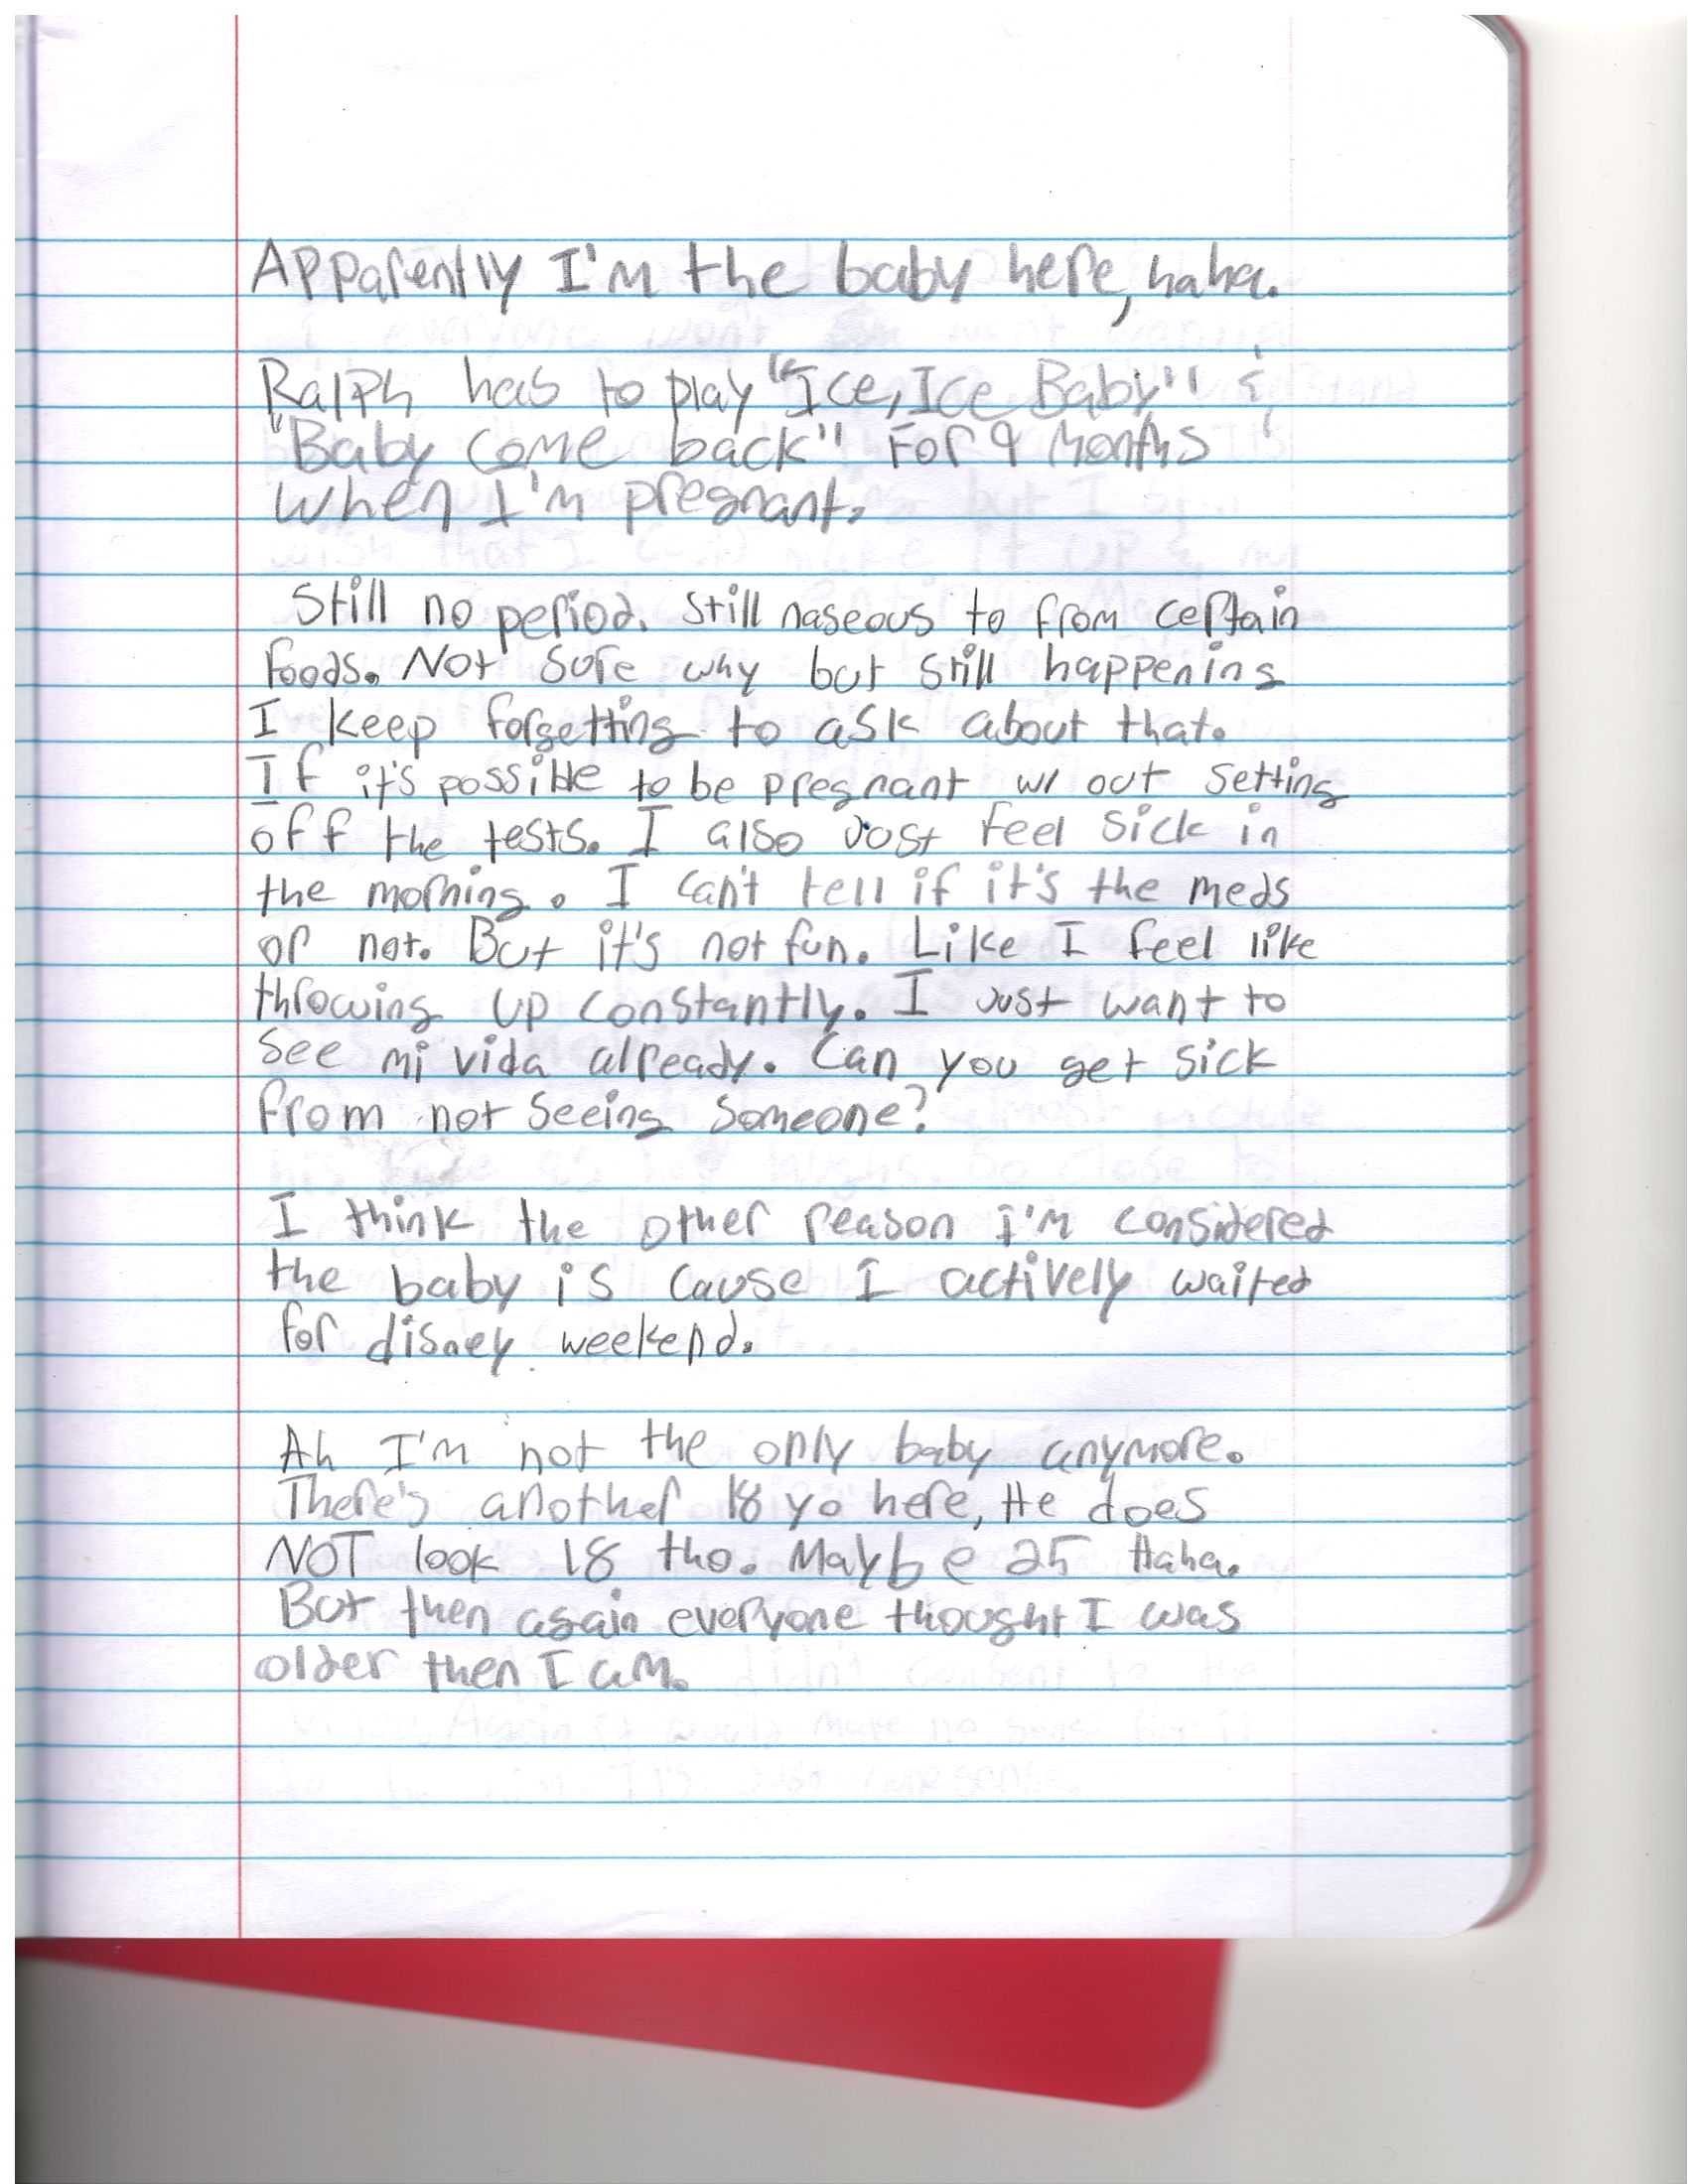 Apparently I'm the baby here, haha.
Ralph has to play "Ice, Ice Baby" &
"Baby come back" For 9 Months
when I'm pregnant.
Still no period. Still naseous to from certain
foods. Not sure why but still happening
I keep forgetting to ask about that.
If it's possible to be pregnant w/ out setting
off the tests. I also just feel sick in
the morning. I can't tell if it's the meds
or not. But it's not fun. Like I feel like
throwing up constantly. I just want to
see mi vida already. Can you get sick
from not seeing someone?
I think the other reason i'm considered
the baby is cause I actively waited
for disney weekend.
Ah I'm not the only baby anymore.
There's another 18 yo here, He does
NOT look 18 tho. Maybe 25 Haha.
But then again everyone thought I was
older then I am.